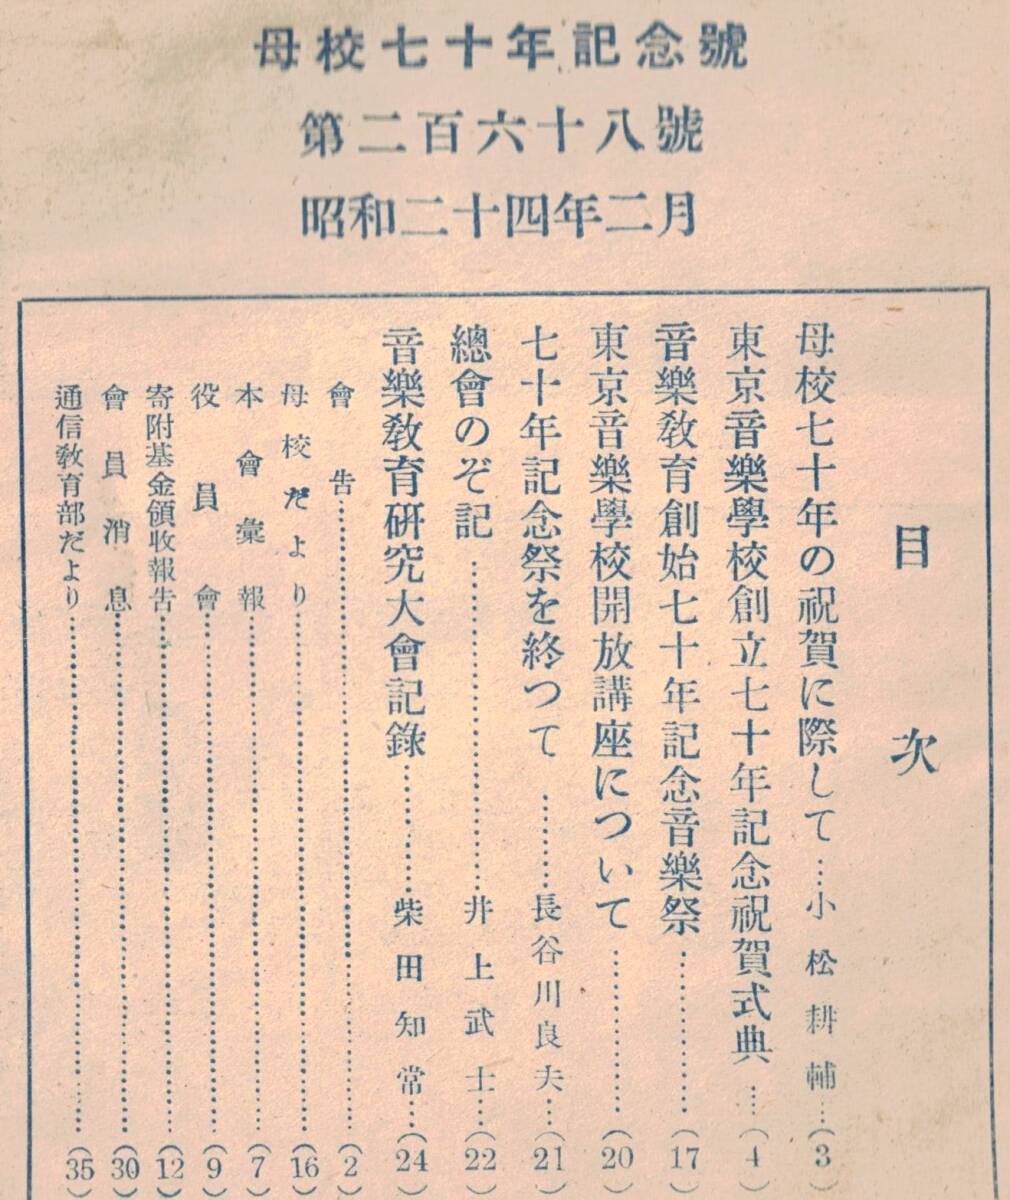 母校七十年記念號
第二百六十八號
昭和二十四年二月
目次
母校七十年の祝賀に際して…小松耕輔…(3)
東京音樂學校創立七十年記念祝賀式典…(4)
音樂敎育創始七十年記念音樂祭………(17)
東京音樂學校開放講座について………(20)
七十年記念祭を終つて………長谷川良夫…(21)
總會のぞ記………井上武士…(22)
音樂敎育硏究大會記錄………柴田知常…(24)
會告………(2)
母校だより………(16)
本會彙報………(7)
役員會………(9)
寄附基金領收報告………(12)
會員消息………(30)
通信敎育部だより………(35)